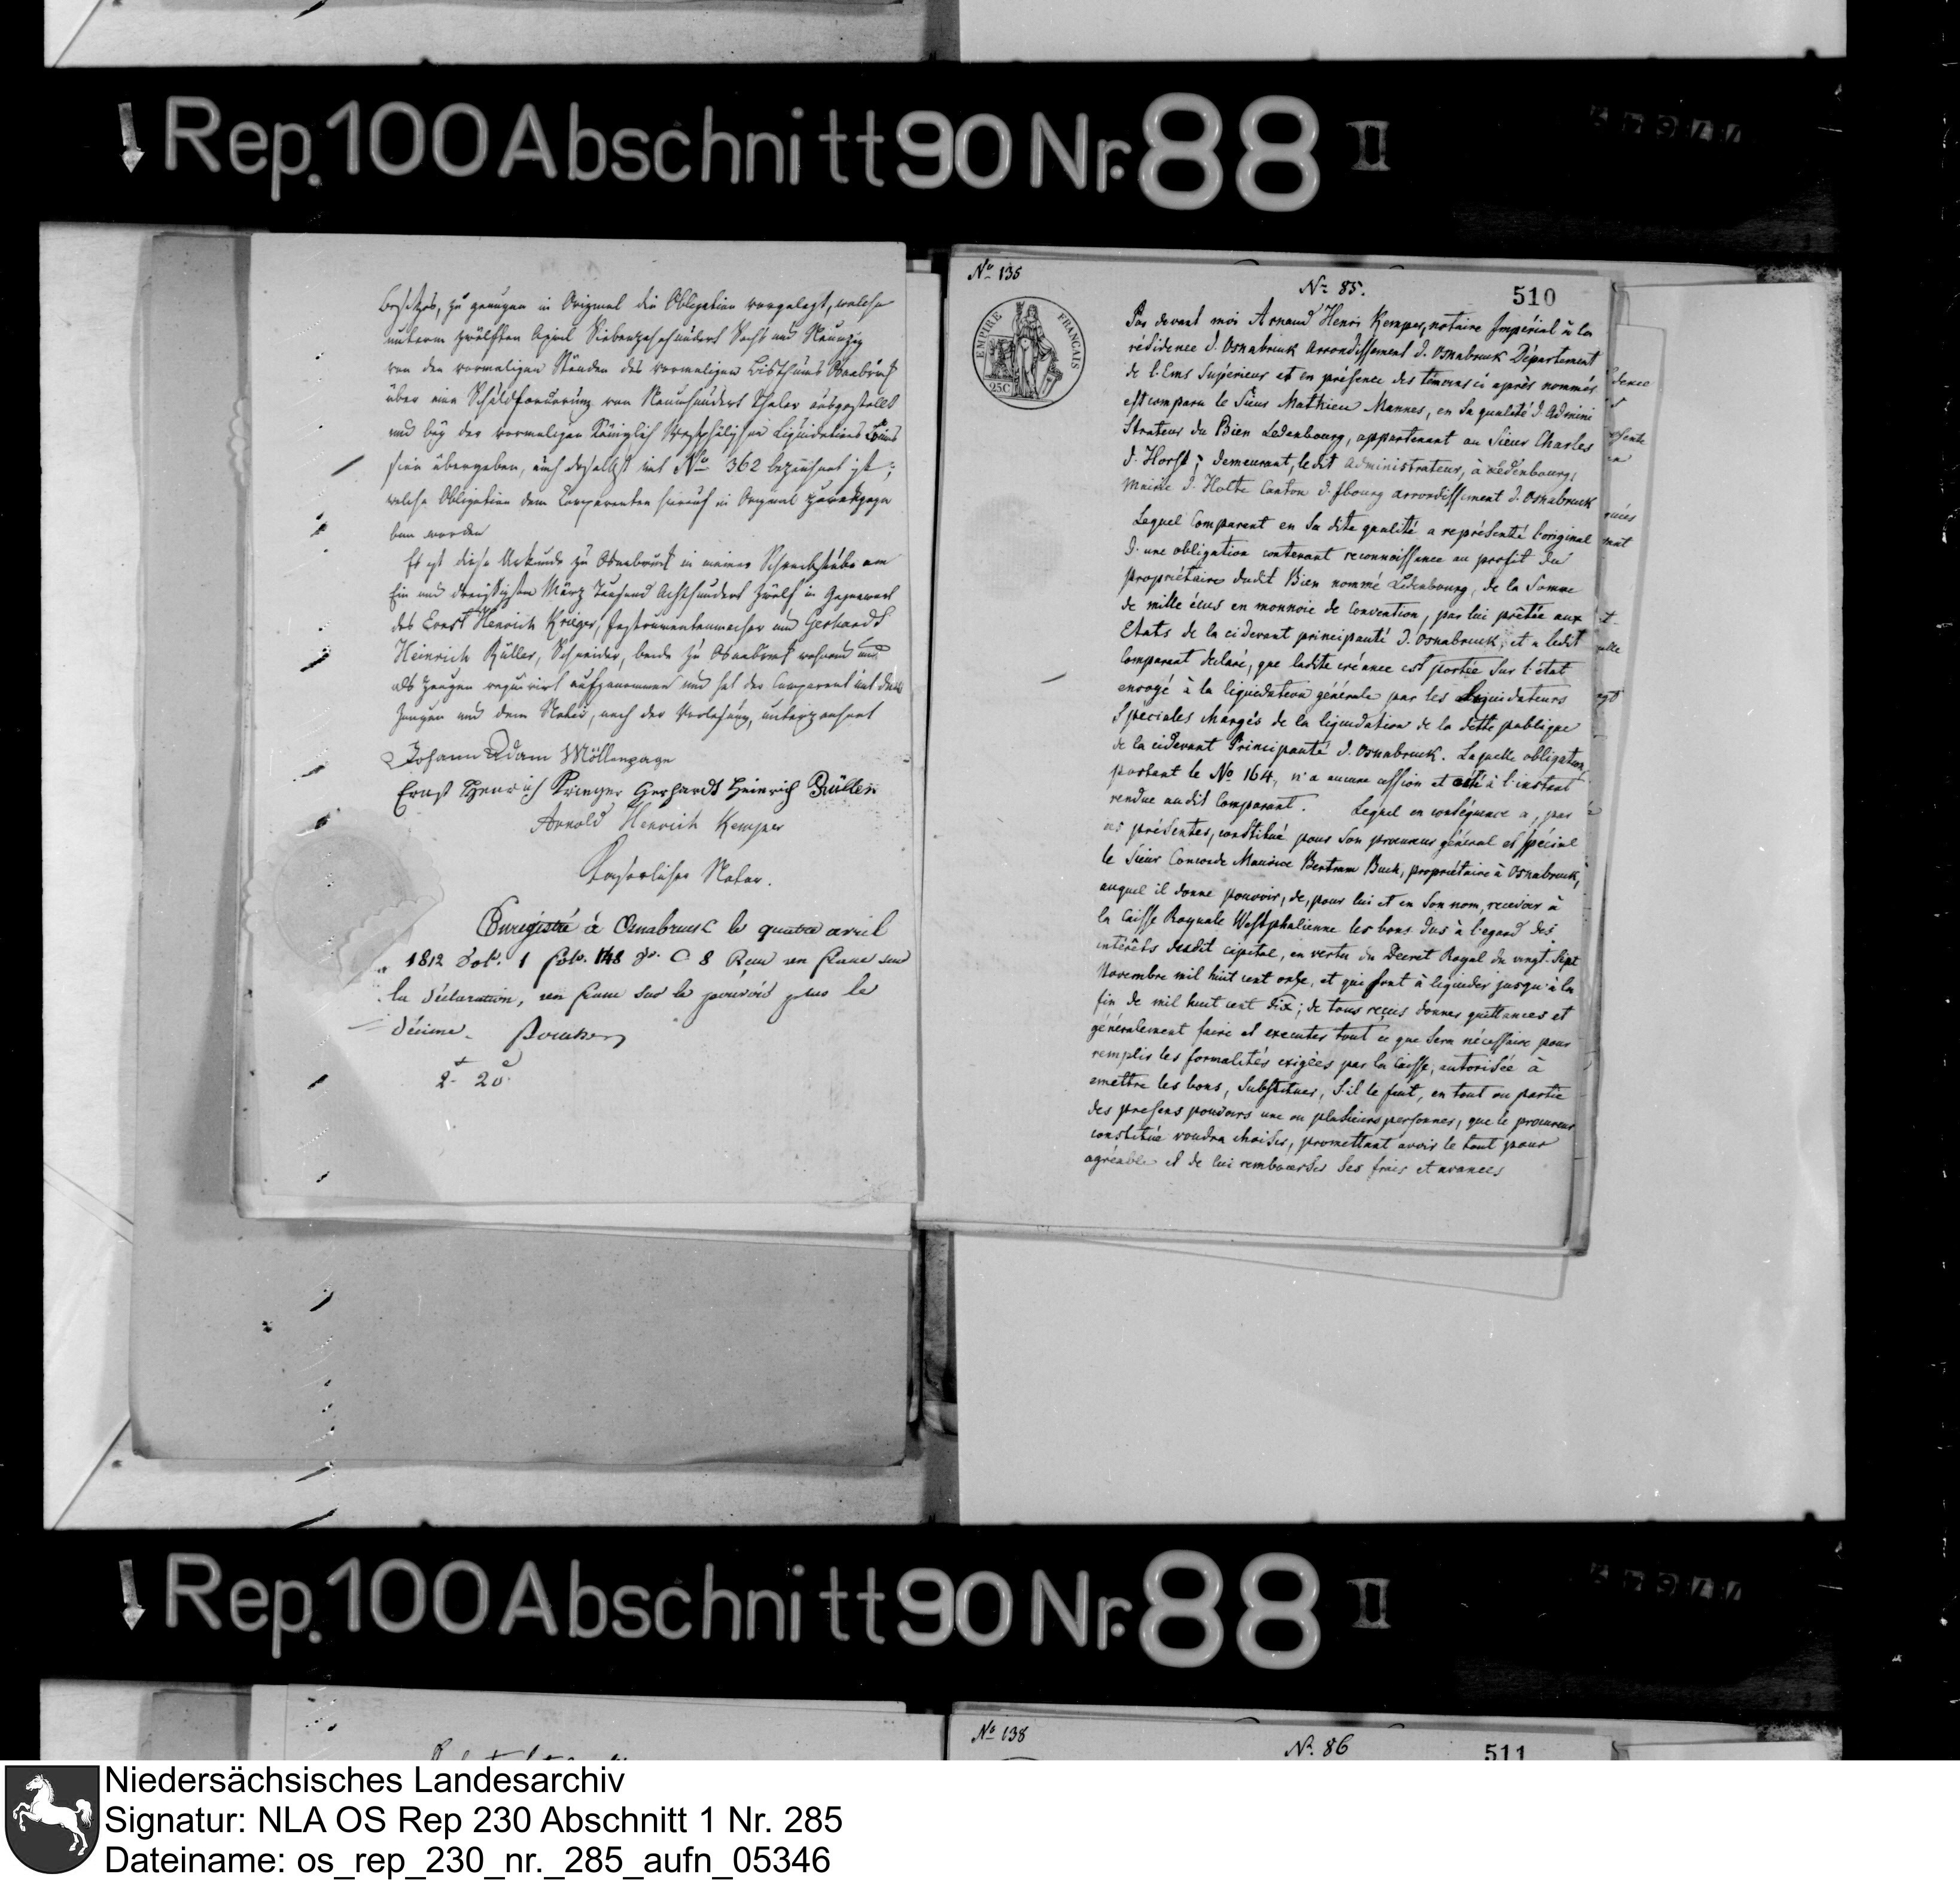 Rep. 100 Abschnitt 90 Nr. 88 II
besitzes, zu genügen in Original die Obligation vorgelegt, welche
unterm zwölften April Siebenzehnhundert Sechs und Neunzig
von den vormaligen Ständen des vormaligen Bisthums Osnabrück
über eine Schuldforderung von Neunhundert Thaler ausgestellt
und bey der vormaligen Königlich Westphälischen Liquidations
sion übergeben, auch daselbst mit No 362 bezeichnet ist;
welche Obligation dem Comparenten hierauf in Original zurückgege
ben worden
Es ist diese Urkunde zu Osnabrück in meiner Schreibstube am
Ein und dreißigsten März Tausend Achthundert Zwölf in Gegenwart
des Ernst Henrich Krieger, Instrumentenmacher und Gerhardt
Heinrich Rüller, Schneider, beide zu Osnabrück wohnend und
als Zeugen requirirt aufgenommen und hat der Comparent mit den
Zeugen und dem Notar, nach der Vorlesung, unterzeichnet
Johann Adam Möllenpage
Ernst Henrich Krieger Gerhardt Heinrich Rüller
Arnold Henrich Kemper
Kayserlicher Notar.
Enregistré à Osnabruck le quatre avril
1812 Vol. 1 fol. 148 Vo. C 8 Reçu un franc sur
la déclaration, un franc sur le pouvoir plus le
décime.
2 20
No 135
No 85.
510
EMPIRE FRANÇAIS
25C
Par devant moi Arnaud Henri Kemper, notaire Impérial à la
résidence d'Osnabruck Arrondissement d'Osnabruck Département
de l'Ems Supérieur et en présence des témoins ci après nommés
est comparu le Sieur Mathieu Mannes, en Sa qualité d'Admini
Strateur du Bien Ledenbourg, appartenant au Sieur Charles
d. Horst; demeurant, ledit Administrateur, à Ledenbourg,
Mairie d. Holte Canton d. Jbourg arrondissement d. Osnabruck
Lequel Comparent en Sa dite qualité a représenté l'original
d'une obligation contenant reconnoissance au profit du
propriétaire dudit Bien nommé Ledenbourg, de la Somme
de mille écus en monnoie de Convention, par lui prêtée aux
Etats de la cidevant principauté d. Osnabruck; et a ledit
Comparent déclaré, que ladite créance est portée Sur l'état
envoyé à la liquidation générale par les Liquidateurs
Spéciales chargés de la liquidation de la dette publique
de la cidevant Principauté d. Osnabruck. Laquelle obligation,
portant le No 164, n'a aucune cession et a été à l'instant
rendue audit Comparant. Lequel en conséquence a, par
ces présentes, constitué pour Son procureur général et Spécial
le Sieur Conrade Maurice Bertram Buch, propriétaire à Osnabruck,
auquel il donne pouvoir, de, pour lui et en Son nom, recevoir à
la Caisse Royale Westphalienne les bons dus à l'egard des
intérêts dudit capital, en vertu du Decret Royal du vingt-Sept
Novembre mil huit cent onze, et qui sont à liquider jusqu'à la
fin de mil huit cent dix; de tous reçus donner quittances et
généralement faire et executer tout ce que Sera nécessaire pour
remplir les formalités exigées par la Caisse, autorisée à
emettre les bons, Substituer, S'il le faut, en tout ou partie
des presens pouvoirs une ou plusieurs personnes, que le procureur
constitué voudra choisir, promettant avoir le tout pour
agréable et de lui rembourser Ses frais et avances
Rep. 100 Abschnitt 90 Nr. 88 II
No 138
No. 86
511
Niedersächsisches Landesarchiv
Signatur: NLA OS Rep 230 Abschnitt 1 Nr. 285
Dateiname: os_rep_230_nr._285_aufn_05346